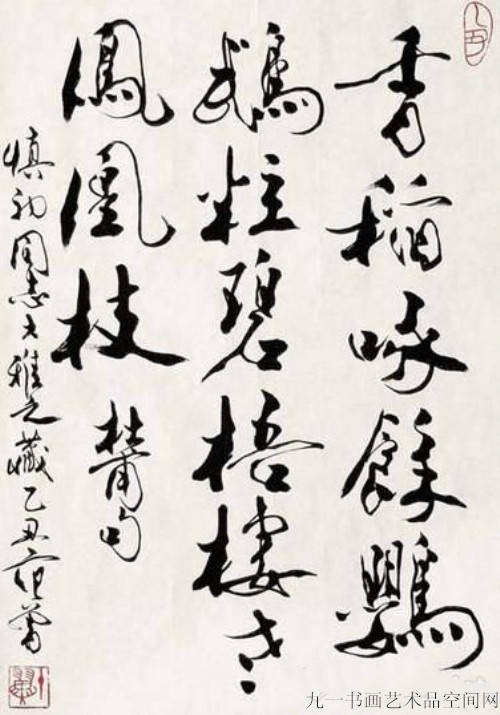 香稻啄餘鸚
鵡粒碧梧棲老
鳳凰枝 杜甫句
慎初同志大雅之藏 乙丑
九一书画艺术品空间网